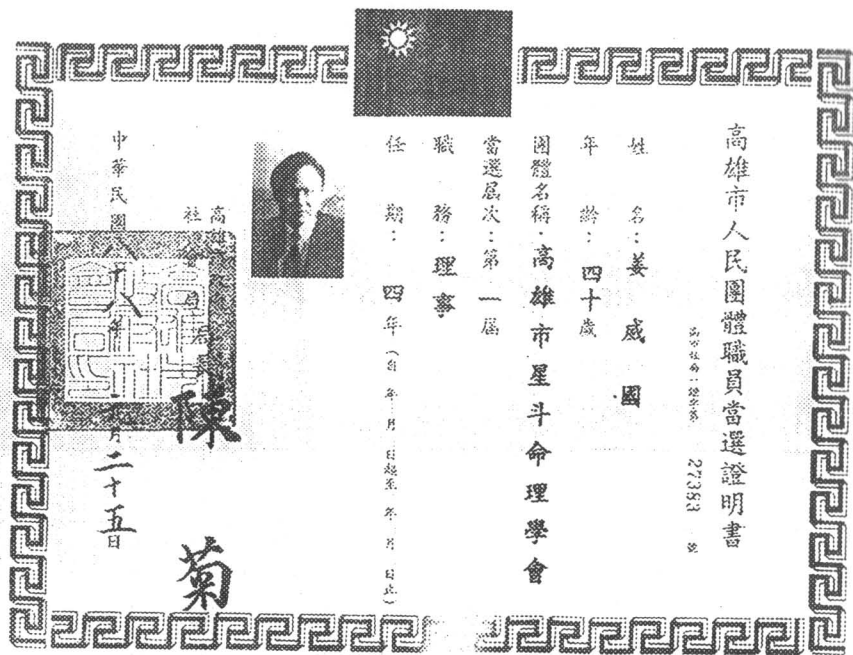 高雄市人民團體職員當選證明書
27383 號
姓名：姜威國
年齡：四十歲
團體名稱：高雄市星斗命理學會
當選屆次：第一屆
職務：理事
任期：四年（自 年 月 日起至 年 月 日止）
高雄市
社會局局長 陳菊
中華民國八十八年 月二十五日